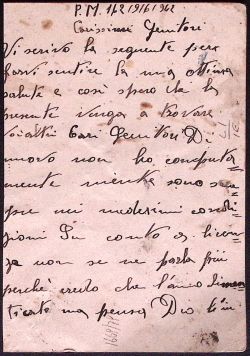 P.M. 142 19/6/1942
Carissimi Genitori
Vi scrivo la seguente per
farvi sentire la mia ottima
salute e così spero che la
presente venga a trovare
voialtri Cari Genitori Di
nuovo non ho
mente niente sono sem
pre nei medesimi condi
zioni In conto a licen
za non se ne parla più
perche credo che l'anno dimen
ticate ma pensa Dio